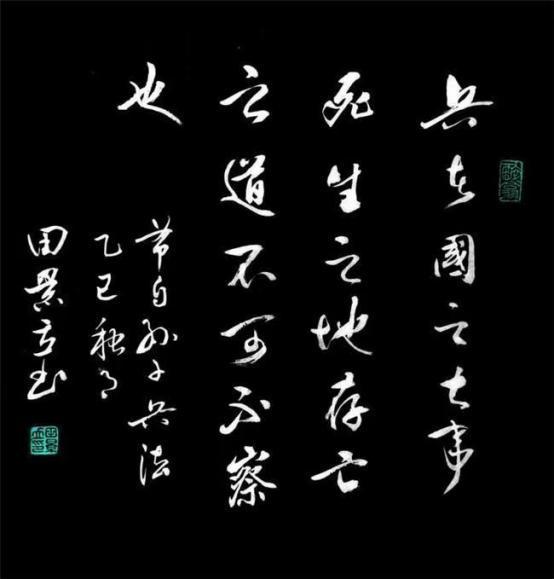 兵者國之大事
死生之地存亡
之道不可不察
也
节自孙子兵法
乙巳秋月
田景立书